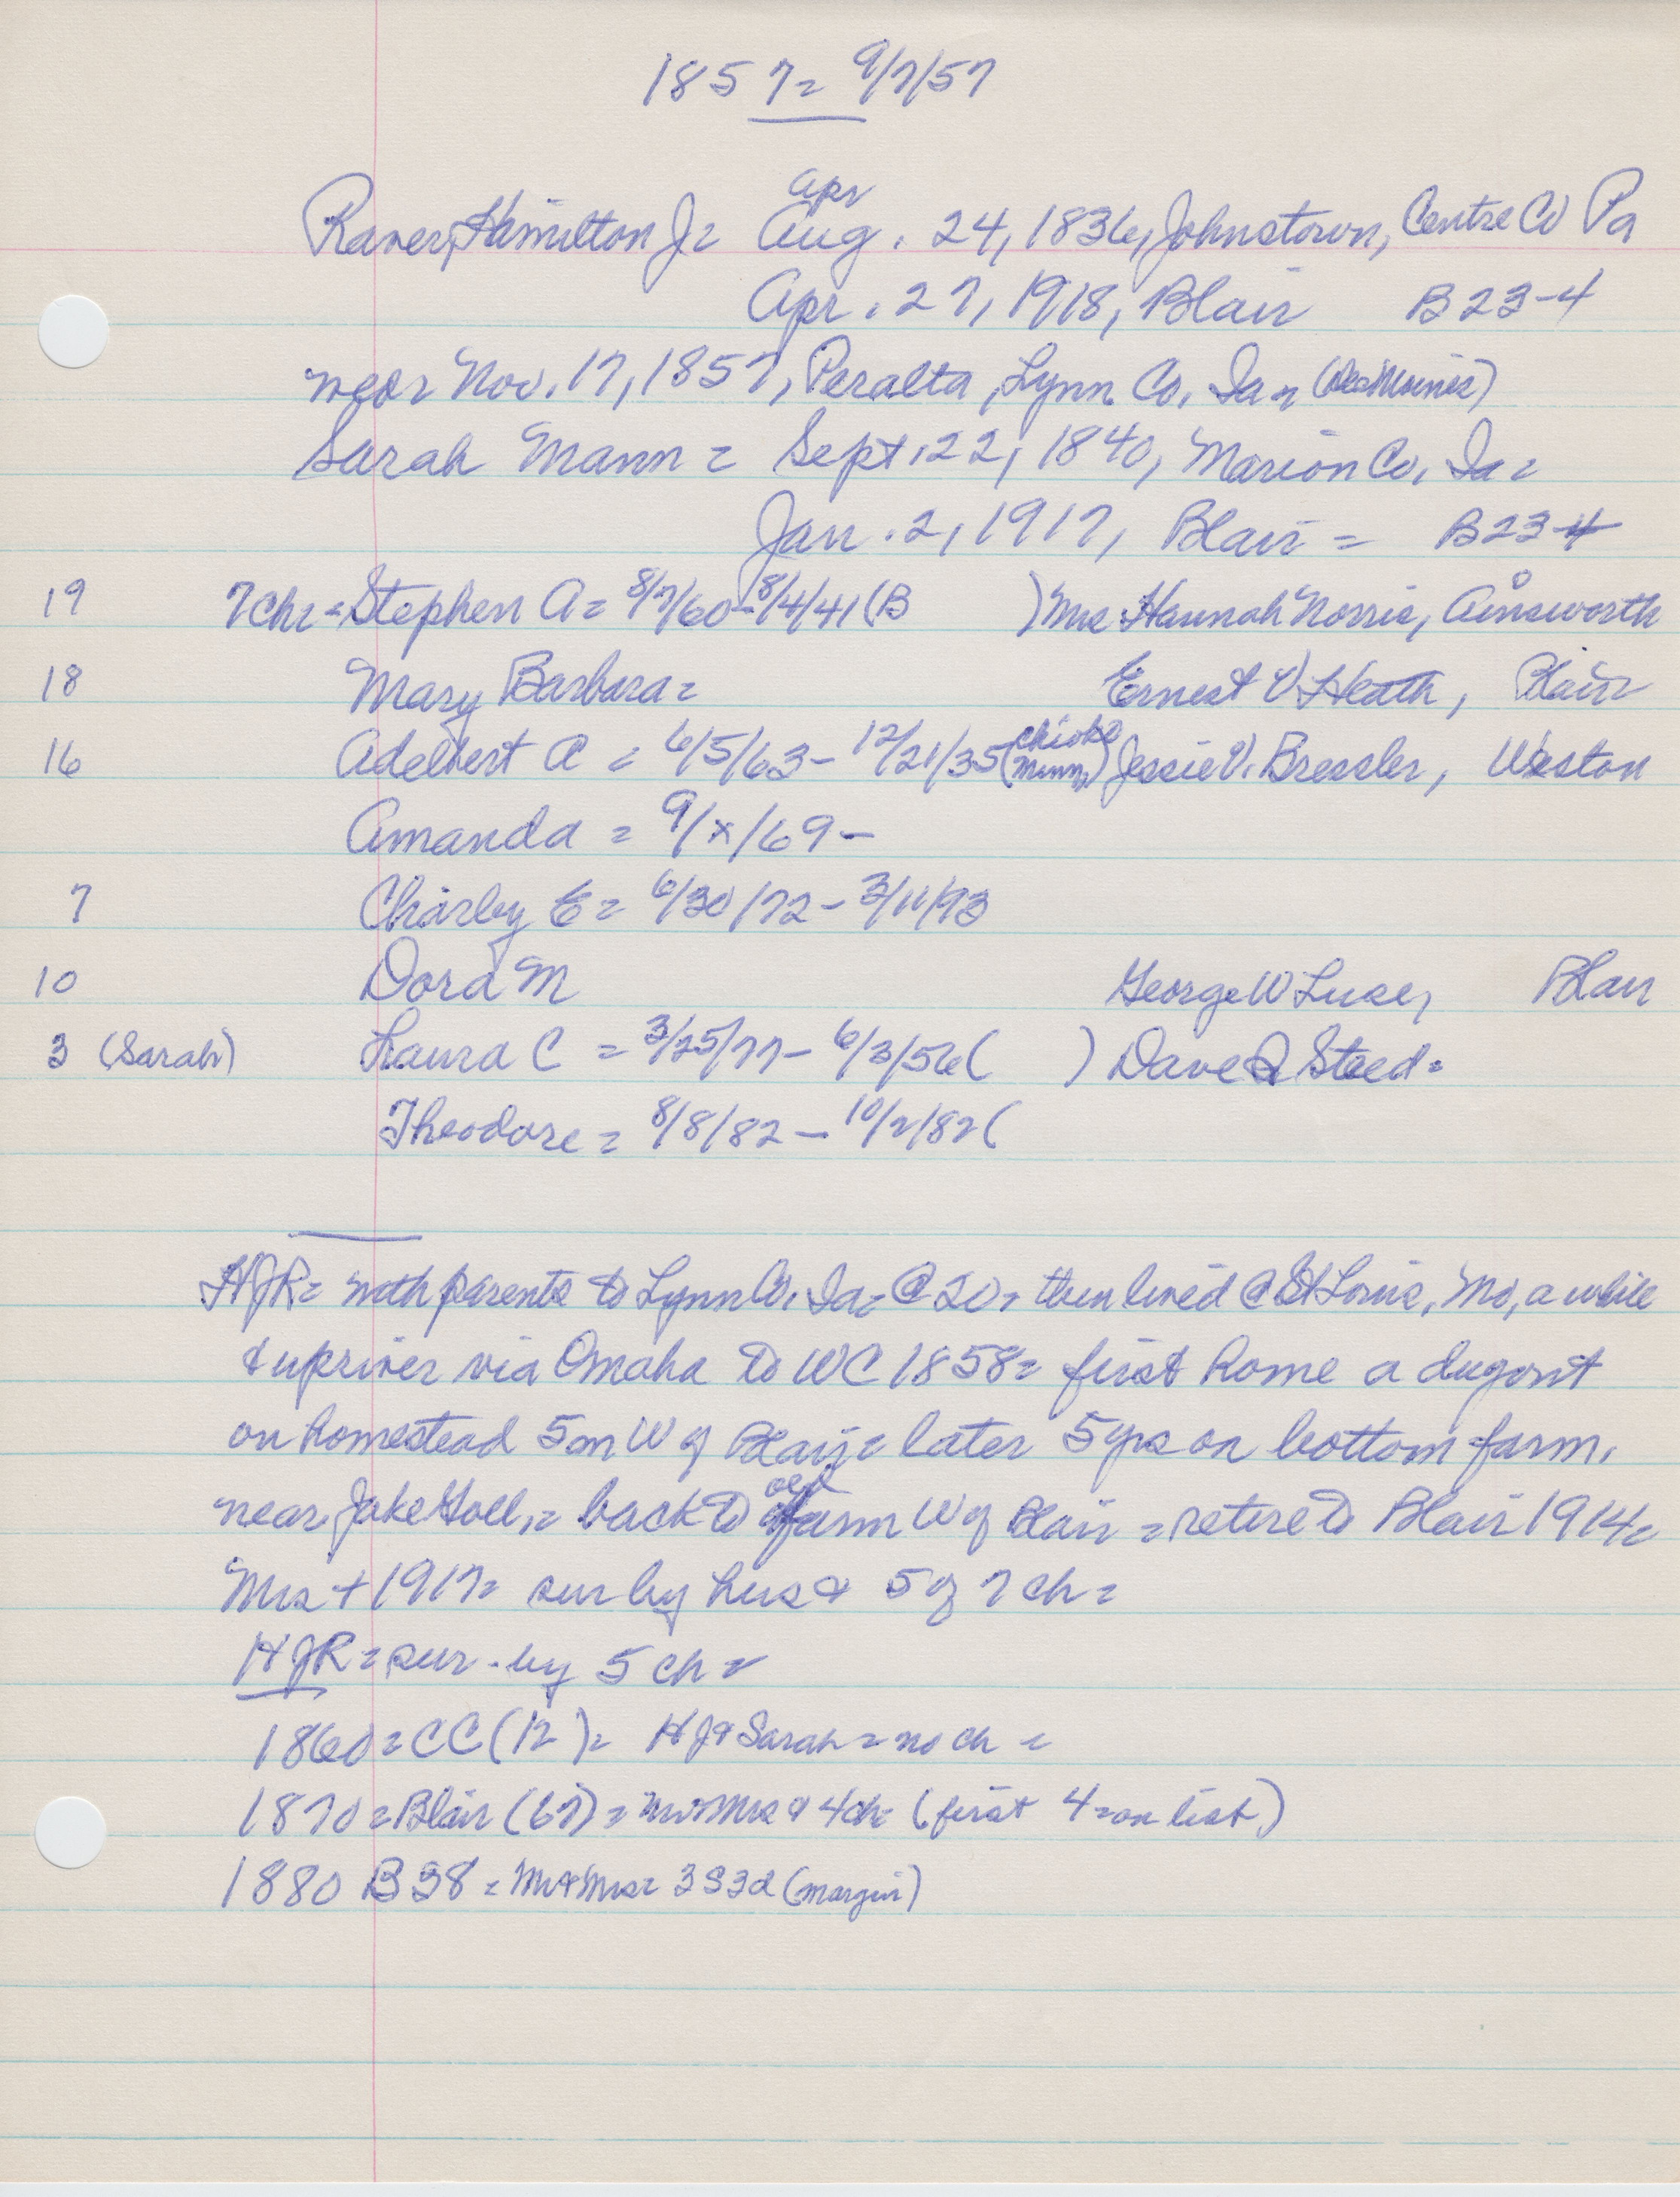 1857 = 9/7/57
apr
Raver, Hamilton J = Aug. 24, 1836, Johnstown, Centre Co Pa
Apr. 27, 1918, Blair B23-4
Nov. 17, 1857, Peralta, Lynn Co, Ia = (Des Moines)
Sarah Mann = Sept. 22, 1840, Marion Co, Ia =
Jan. 2, 1917, Blair = B23-4
19 7 Ch = Stephen A = 8/7/60 - 8/4/41 (B ) Mrs Hannah Norris, Ainsworth
18 Mary Barbara = Ernest V Heath, Blair
16 Adelbert A = 6/5/63 - 12/21/35 (Chioke Minn,) Jessie V. Bressler, Weston
Amanda = 9/x/69 -
7 Charley E = 6/30/72 - 3/11/93
10 Dora M George W Luse, Blair
3 (Sarah) Laura C = 3/25/77 - 6/3/56 ( ) Dave Steed =
Theodore = 8/8/82 - 10/2/82 (
HJR = with parents to Lynn Co, Ia = @ 20, then lived @ St Louis, Mo, a while
& upriver via Omaha to WC 1858 = first home a dugout
on homestead 5m W of Blair = later 5 yrs on bottom farm,
near Jake Goll, = back to old farm W of Blair = retire to Blair 1914 =
Mrs + 1917 = sur by hus & 5 of 7 ch =
HJR = sur. by 5 ch =
1860 = CC (12) = HJ & Sarah = no ch =
1870 = Blair (67) = Mr & Mrs & 4 ch = (first 4 = on list)
1880 B38 = Mr & Mrs = 3 S 3 d (margin)